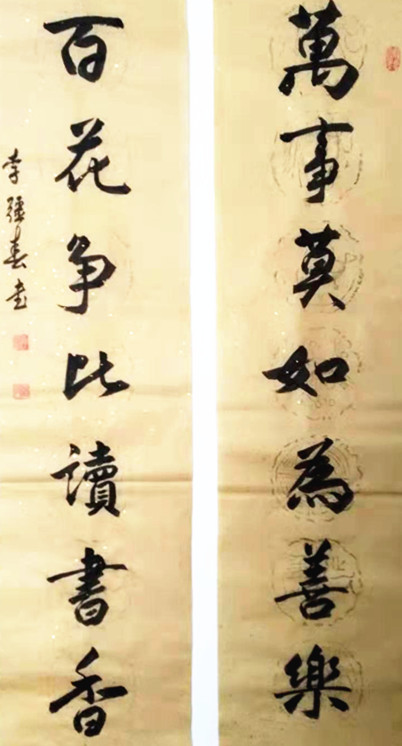 萬事莫如為善樂
百花争比讀書香
李強春書